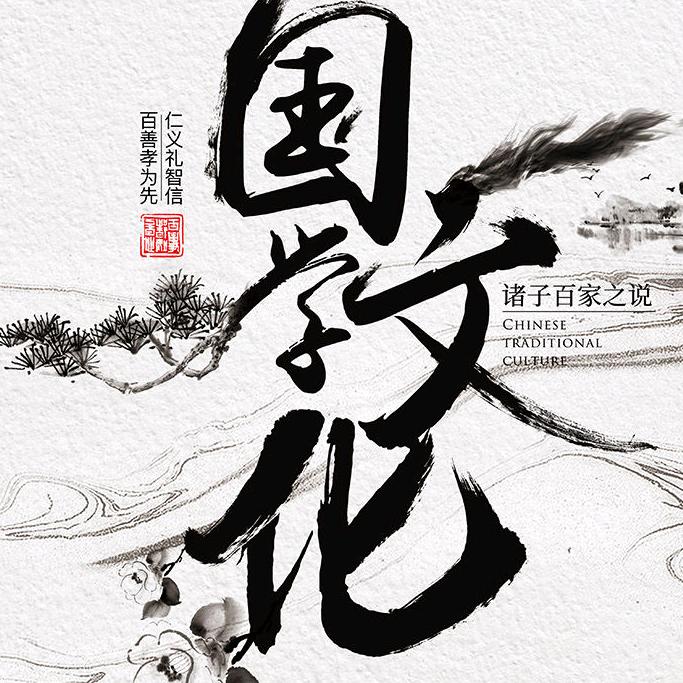 国学文化
仁义礼智信
百善孝为先
诸子百家之说
CHINESE
TRADITIONAL
CULTURE